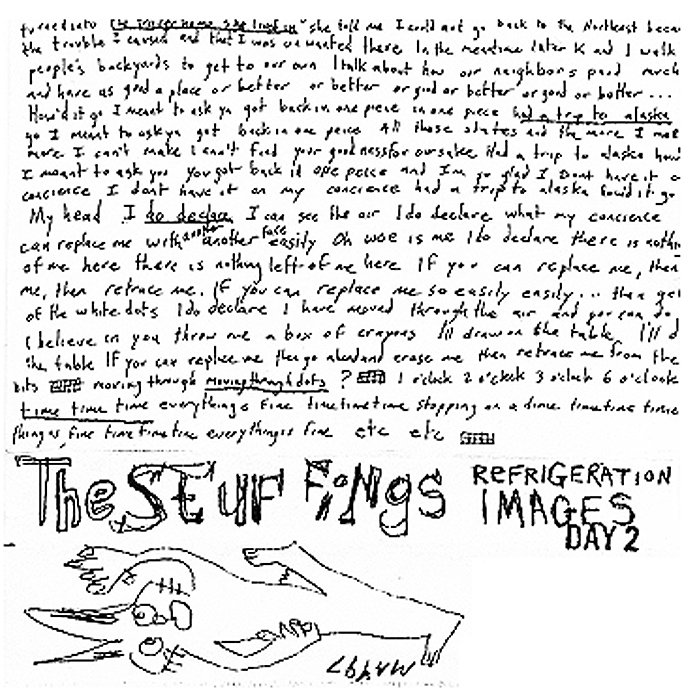 turned into the [...] home she lived in she told me I could not go back to the Northeast becau
the trouble I caused and that I was unwanted there In the meantime later K and I walk
people's backyards to get to our own I talk about how our neighbors paid much
and have as good a place or better or better or good or better or good or better ...
How'd it go I meant to ask ya got back in one piece in one piece had a trip to alaska
go I meant to ask ya got back in one peice All those states and the more I mak
more I can't make I can't find your goodness for our sake Had a trip to alaska how'd
I meant to ask you you got back in one peice and I'm so glad I Dont have it o
concience I dont have it on my concience had a trip to alaska how'd it go
My head I do declare I can see the air I do declare what my concience
can replace me with another another face easily Oh woe is me I do declare there is nothin
of me here there is nothing left of me here If you can replace me, then
me, then retrace me. If you can replace me so easily easily... then get
of the white dots I do declare I have moved through the air and you can do
I believe in you throw me a box of crayons I'll draw on the table I'll d
the table If you can replace me then go ahead and erase me then retrace me from the
bits moving through moving through dots ? 1 o'clock 2 o'clock 3 o'clock 6 o'clock
time time time everything's fine time time time stopping on a dime time time time
things fine time time time everything is fine etc etc
The Stuffings REFRIGERATION
IMAGES
DAY 2
MAY 97